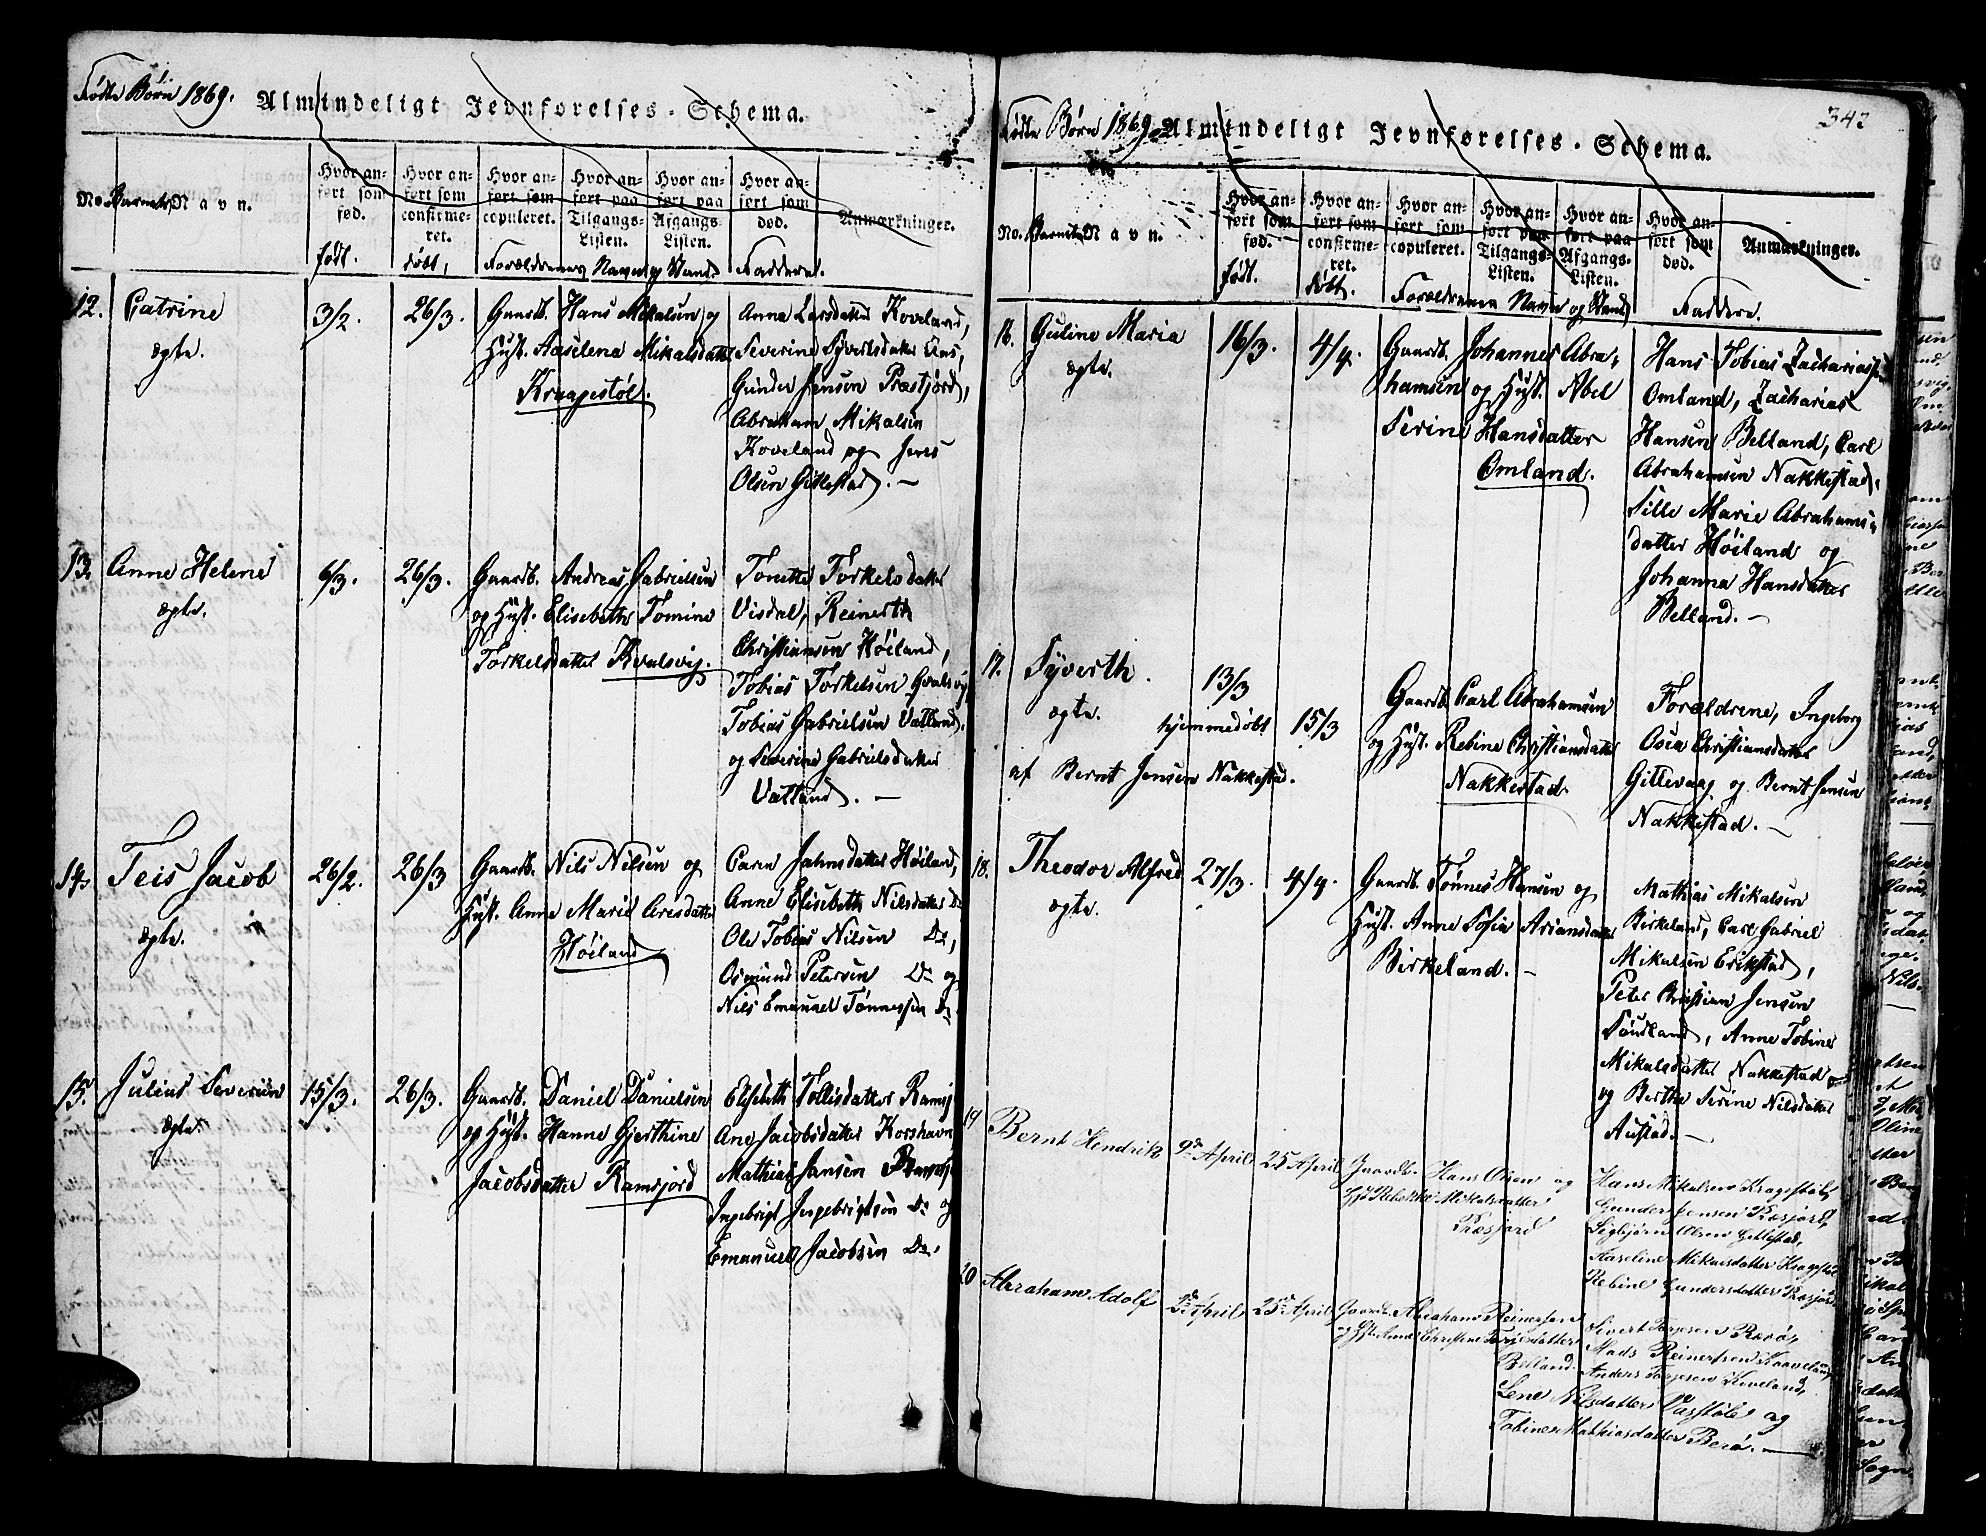 Fødte Børn 1869. Almindeligt Jevnførelses-Schema.
No. Barnets Navn.
Hvor anført som fød.
født.
Hvor anført som confirmeret.
døbt.
Hvor anført som copuleret.
Hvor anført paa Tilgangs-Listen.
Hvor anført paa Afgangs-Listen.
Forældrenes Navn og Stand.
Hvor anført som død.
Faddere.
Anmærkninger.
12. Catrine 3/2. 26/3. Gaardb. Hans Mikalsen og
ægte. Hust. Aaselena Mikalsdatter
Kraagestøl.
Anna Larsdatter Koveland,
Severine Syvertsdatter
Gunder Jensen Præstjord,
Abraham Mikalsen
Koveland og Jens
Olsen Gitlestad. —
13. Anne Helene 6/3. 26/3. Gaardb. Andreas Gabrielsen
ægte. og Hust. Elisabeth Tomine
Torkelsdatter Kvalsvig.
Tonette Torkelsdatter
Visdal, Reinerth
Christiansen Höiland,
Tobias Torkelsen Qvalsvig
Tobias Gabrielsen Vatland,
og Severine Gabrielsdatter
Vatland. —
14. Teis Jacob 26/2. 26/3 Gaardb. Nils Nilsen og
ægte. Hust. Anne Marie Aresdatter
Höiland
Caren Jahnsdatter Höiland,
Anne Elisabeth Nilsdatter Do
Ole Tobias Nilsen Do,
Osmund Petersen Do og
Nils Emanuel Tönnessen Do
15. Julius Severin 15/3. 26/3. Gaardb. Daniel Danielsen
ægte. og Hust. Hanne Gjerthine
Jacobsdatter Ramsjord
Elisabeth Tollisdatter Ramsj
Ane Jacobsdatter Korshavn
Mathias Jansen Ramsj
Ingebrigt Ingebrigtsen Do og
Emanuel Jacobsen Do.
Fødte Børn 1869. Almindeligt Jevnførelses-Schema.
343
No. Barnets Navn.
Hvor anført som fød.
født.
Hvor anført som confirmeret.
døbt.
Hvor anført som copuleret.
Hvor anført paa Tilgangs-Listen.
Hvor anført paa Afgangs-Listen.
Forældrenes Navn og Stand
Hvor anført som død.
Faddere.
Anmærkninger.
16. Guline Maria 16/3. 4/4. Gaardb. Johannes Abra-
ægte. hamsen og Hust. Abel
Serine Hansdatter
Omland.
Hans Tobias Zachariassen
Omland, Zacharias
Hansen Belland, Carl
Abrahamsen Nakkestad,
Sille Marie Abrahams-
datter Höiland og
Johanna Hansdatter
Belland. —
17. Syverth. 13/3 Gaardb. Carl Abrahamsen
ægte. hjemmedøbt 15/3 og Hust. Rebine Christiansdatter
af Bernt Jensen Nakkestad. Nakkestad.
Forældrene, Ingeborg
Osea Christiansdatter
Gittevaag og Bernt Jensen
Nakkestad. —
18. Theodor Alfred 27/3. 4/4. Gaardb. Tönnes Hansen og
ægte. Hust. Anne Sofia Ariansdatter
Birkeland. —
Mathias Mikalsen
Birkeland, Carl Gabriel
Mikalsen Erikstad,
Peter Christian Jensen
Söudland, Anne Tobine
Mikalsdatter Nakkestad
og Berthe Serine Nilsdatter
Austad. —
19 Bernt Hendrik 9de April 25 April Gaardb. Hans Olsen og
Hst Rebekka Mikalsdatter
Ræsjord
Hans Mikalsen Kragestøl,
Gunder Jensen Ræsjord,
Sigbjørn Olsen Gitlestad,
Aaseline Mikalsdatter Kragestøl
Rebine Gundersdatter Ræsjord
20 Abraham Adolf 2de April 25de April Gaardb. Abraham Reinersen
og Hst Anne Christine Terjesdatter
Belland.
Sivert Terjesen Rærø,
Mads Reinertsen Kaaveland,
Anders Terjesen Koveland,
Lene Nilsdatter Varstøle og
Tobine Mathiasdatter Berø. —